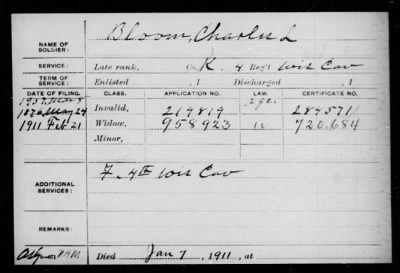 NAME OF SOLDIER: Bloom, Charles L
SERVICE: Late rank, Co. K, 4 Reg't Wis Cav
TERM OF SERVICE: Enlisted , 1 Discharged , 1
DATE OF FILING. CLASS. APPLICATION NO. LAW. CERTIFICATE NO.
Invalid, 219819 284571
1911 Feb 21 Widow, 958923 720.684
Minor,
ADDITIONAL SERVICES: F. 4th Wis Cav
REMARKS:
Died Jan 7, 1911, at